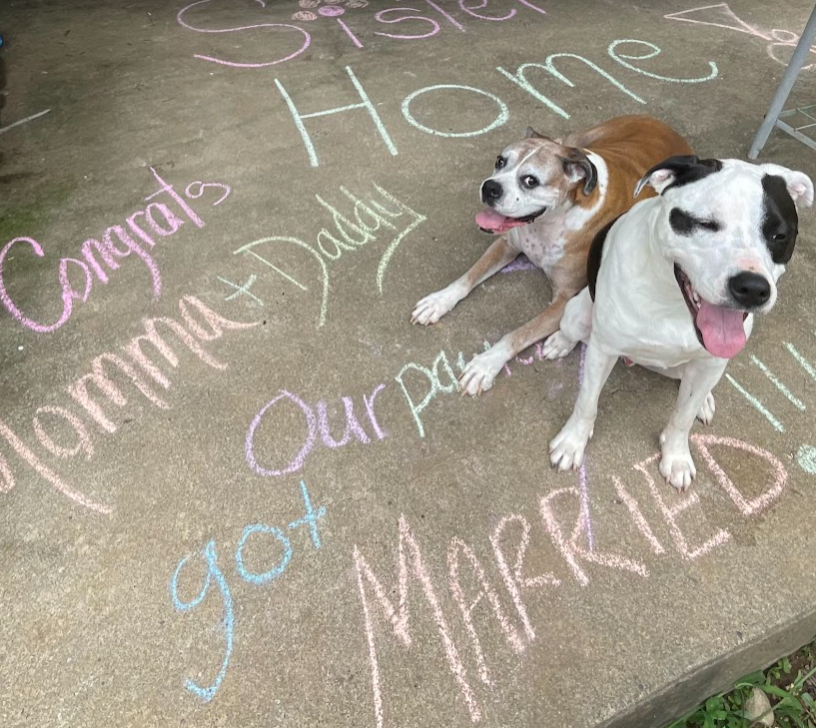 Sister
Home
Congrats
Momma + Daddy
Our
got
MARRIED!!!